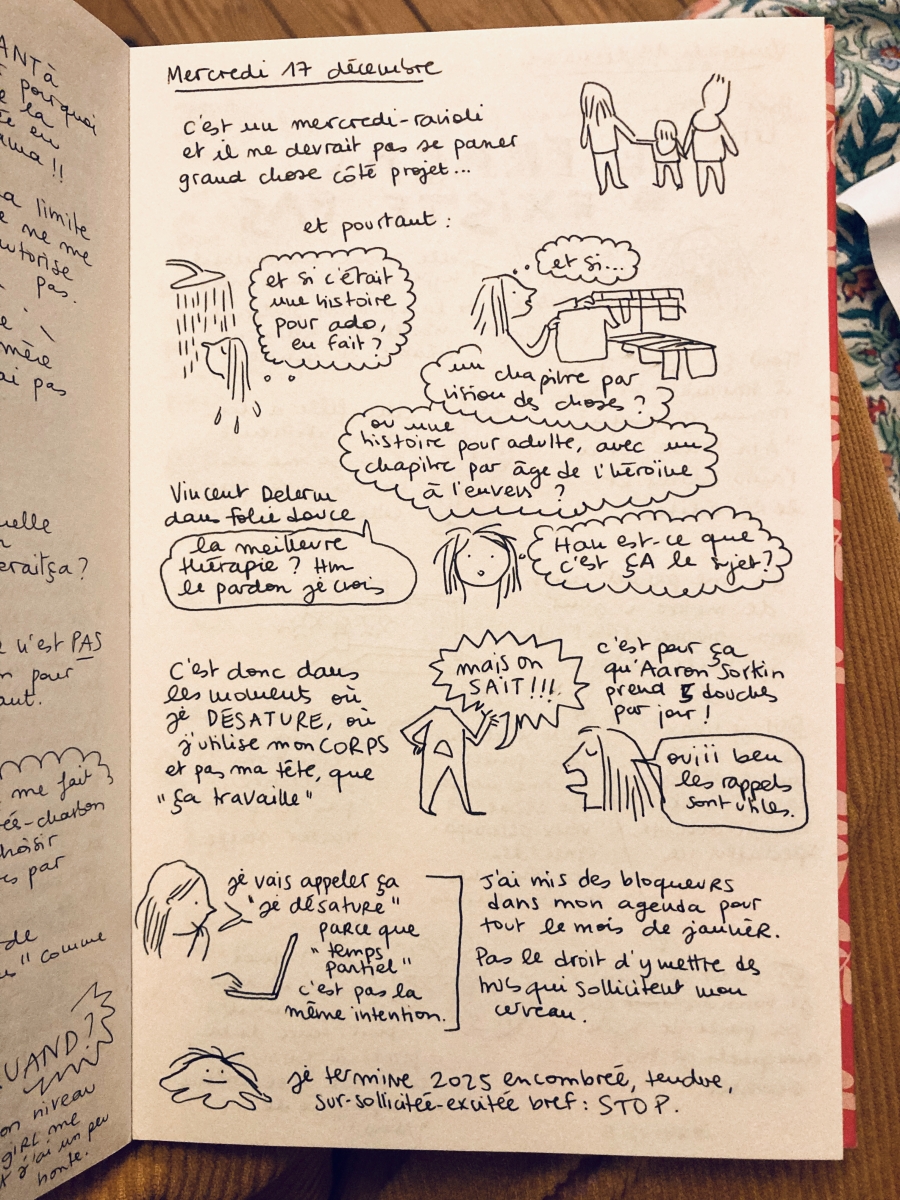 ANTÀ
pourquoi
la
en
!!
limite
ne me
pas.
mère
pas
uelle
eraitça?
n'est PAS
pour
aut.
me fait
ées-charbon
par
comme
UAND?
on niveau
girl me
j'ai un peu
honte.
Mercredi 17 décembre
c'est un mercredi-ravioli
et il ne devrait pas se passer
grand chose côté projet...
et pourtant :
et si c'était
une histoire
pour ado,
en fait ?
et si...
un chapitre par
vision des choses ?
ou une
histoire pour adulte, avec un
chapitre par âge de l'héroïne
à l'envers ?
Vincent Delerm
dans folie douce
la meilleure
thérapie ? Hm
le pardon je crois
Han est-ce que
c'est ÇA le sujet ?
C'est donc dans
les moments où
je DÉSATURE, où
j'utilise mon CORPS
et pas ma tête, que
"ça travaille"
mais on
SAIT !!!
c'est pour ça
qu'Aaron Sorkin
prend 5 douches
par jour !
ouiii ben
les rappels
sont utiles.
je vais appeler ça
"je désature"
parce que
"temps
partiel"
c'est pas la
même intention.
J'ai mis des bloqueurs
dans mon agenda pour
tout le mois de janvier.
Pas le droit d'y mettre des
trucs qui sollicitent mon
cerveau.
je termine 2025 encombrée, tendue,
sur-sollicitée-excitée bref : STOP.